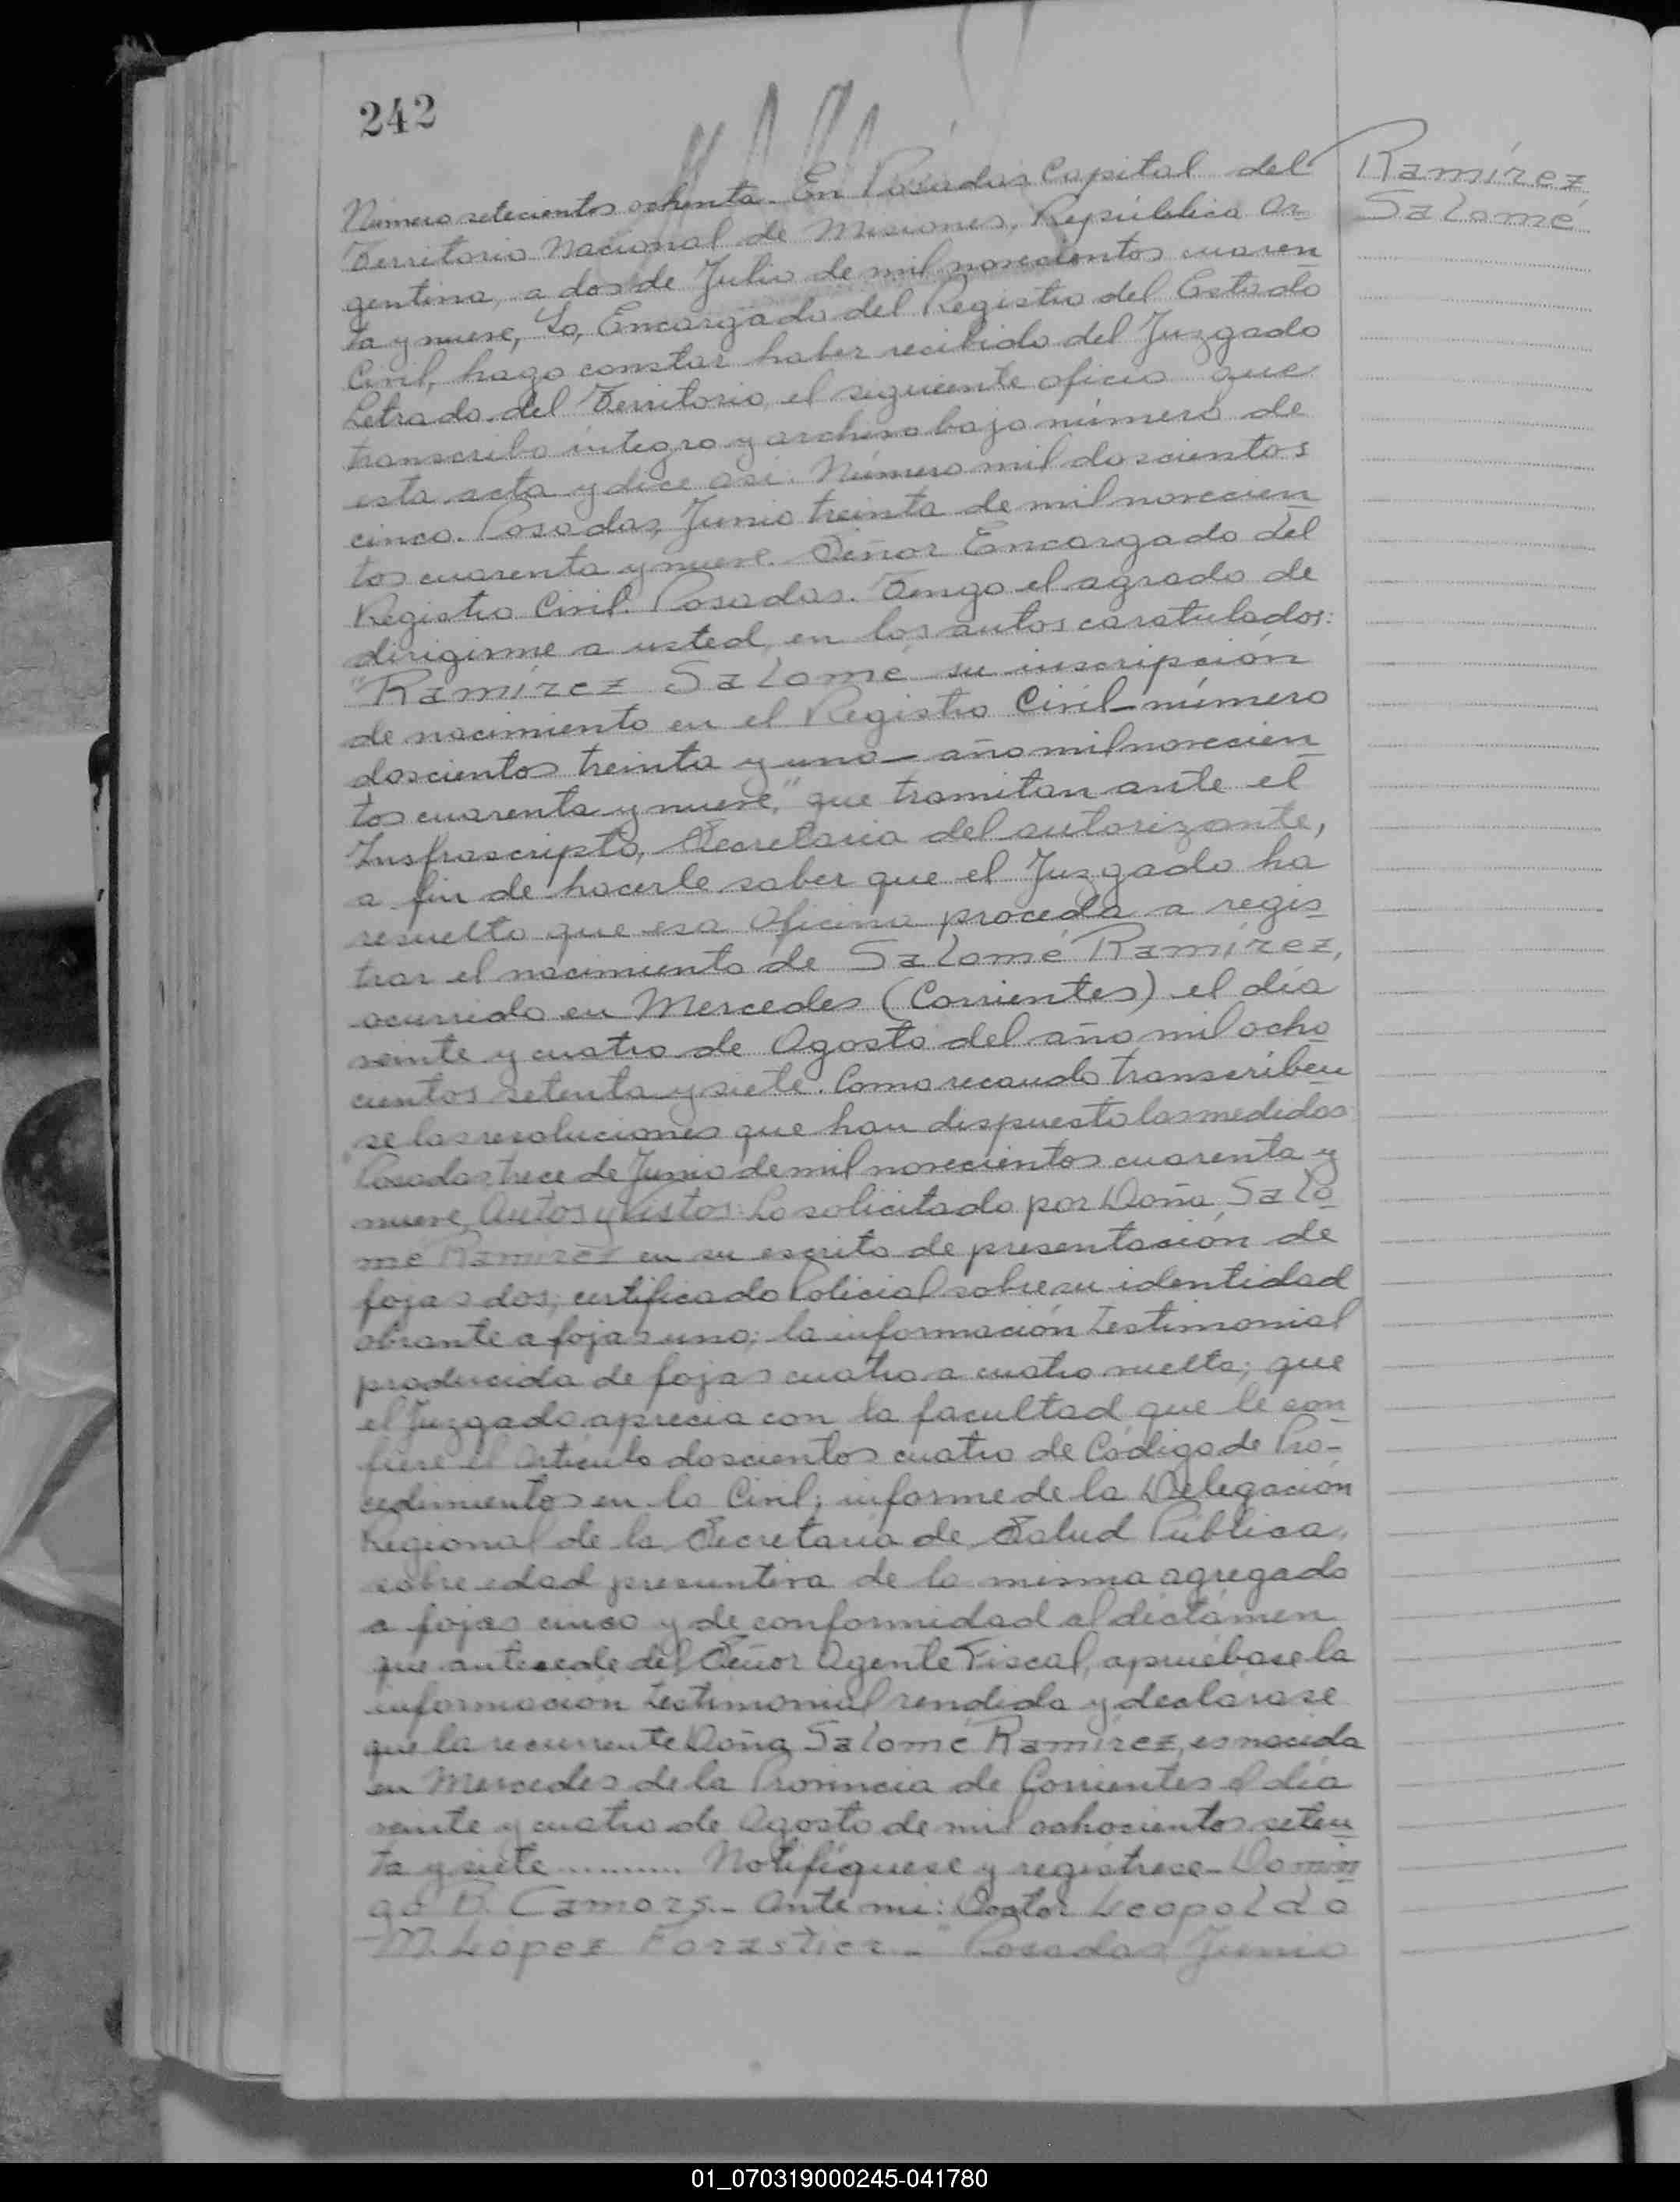 242
Ramírez
Salomé
Número setecientos ochenta. En Posadas Capital del
Territorio Nacional de Misiones, República Ar-
gentina, a dos de Julio de mil novecientos cuaren
ta y nueve, Yo, Encargado del Registro del Estado
Civil, hago constar haber recibido del Juzgado
Letrado del Territorio, el siguiente oficio que
transcribo íntegro y archivo bajo número de
esta acta y dice asi: Número mil doscientos
cinco. Posadas, Junio treinta de mil novecien
tos cuarenta y nueve. Señor Encargado del
Registro Civil. Posadas. Tengo el agrado de
dirigirme a usted, en los autos caratulados:
"Ramírez Salomé su inscripción
de nacimiento en el Registro Civil - número
doscientos treinta y uno - año mil novecien
tos cuarenta y nueve," que tramitan ante el
Insfrascripto, Secretaria del autorizante,
a fin de hacerle saber que el Juzgado ha
resuelto que esa Oficina proceda a regis
trar el nacimiento de Salomé Ramírez,
ocurrido en Mercedes (Corrientes) el día
veinte y cuatro de Agosto del año mil ocho
cientos setenta y siete. Como recaudo transcriben
se las resoluciones que han dispuesto las medidas
"Posadas, trece de Junio de mil novecientos cuarenta y
nueve, Autos y Vistos: Lo solicitado por Doña Salo
mé Ramírez en su escrito de presentación de
fojas dos; certificado Policial sobre su identidad
obrante a fojas uno; la información testimonial
producida de fojas cuatro a cuatro vuelta; que
el Juzgado aprecia con la facultad que le con
fiere el Artículo doscientos cuatro de Código de Pro-
cedimientos en lo Civil; informe de la Delegación
Regional de la Secretaría de Salud Pública,
sobre edad presuntiva de la misma agregado
a fojas cinco y de conformidad al dictámen
que antecede del Señor Agente Fiscal, apruébase la
información testimonial rendida y declarase
que la recurrente Doña Salomé Ramírez, es nacida
en Mercedes de la Provincia de Corrientes el día
veinte y cuatro de Agosto de mil ochocientos seten
ta y siete .......... Notifíquese y regístrese - Domin
go B. Camors.- Ante mi: Doctor Leopoldo
M. Lopez Forastier.-" Posadas, Junio
01_070319000245-041780